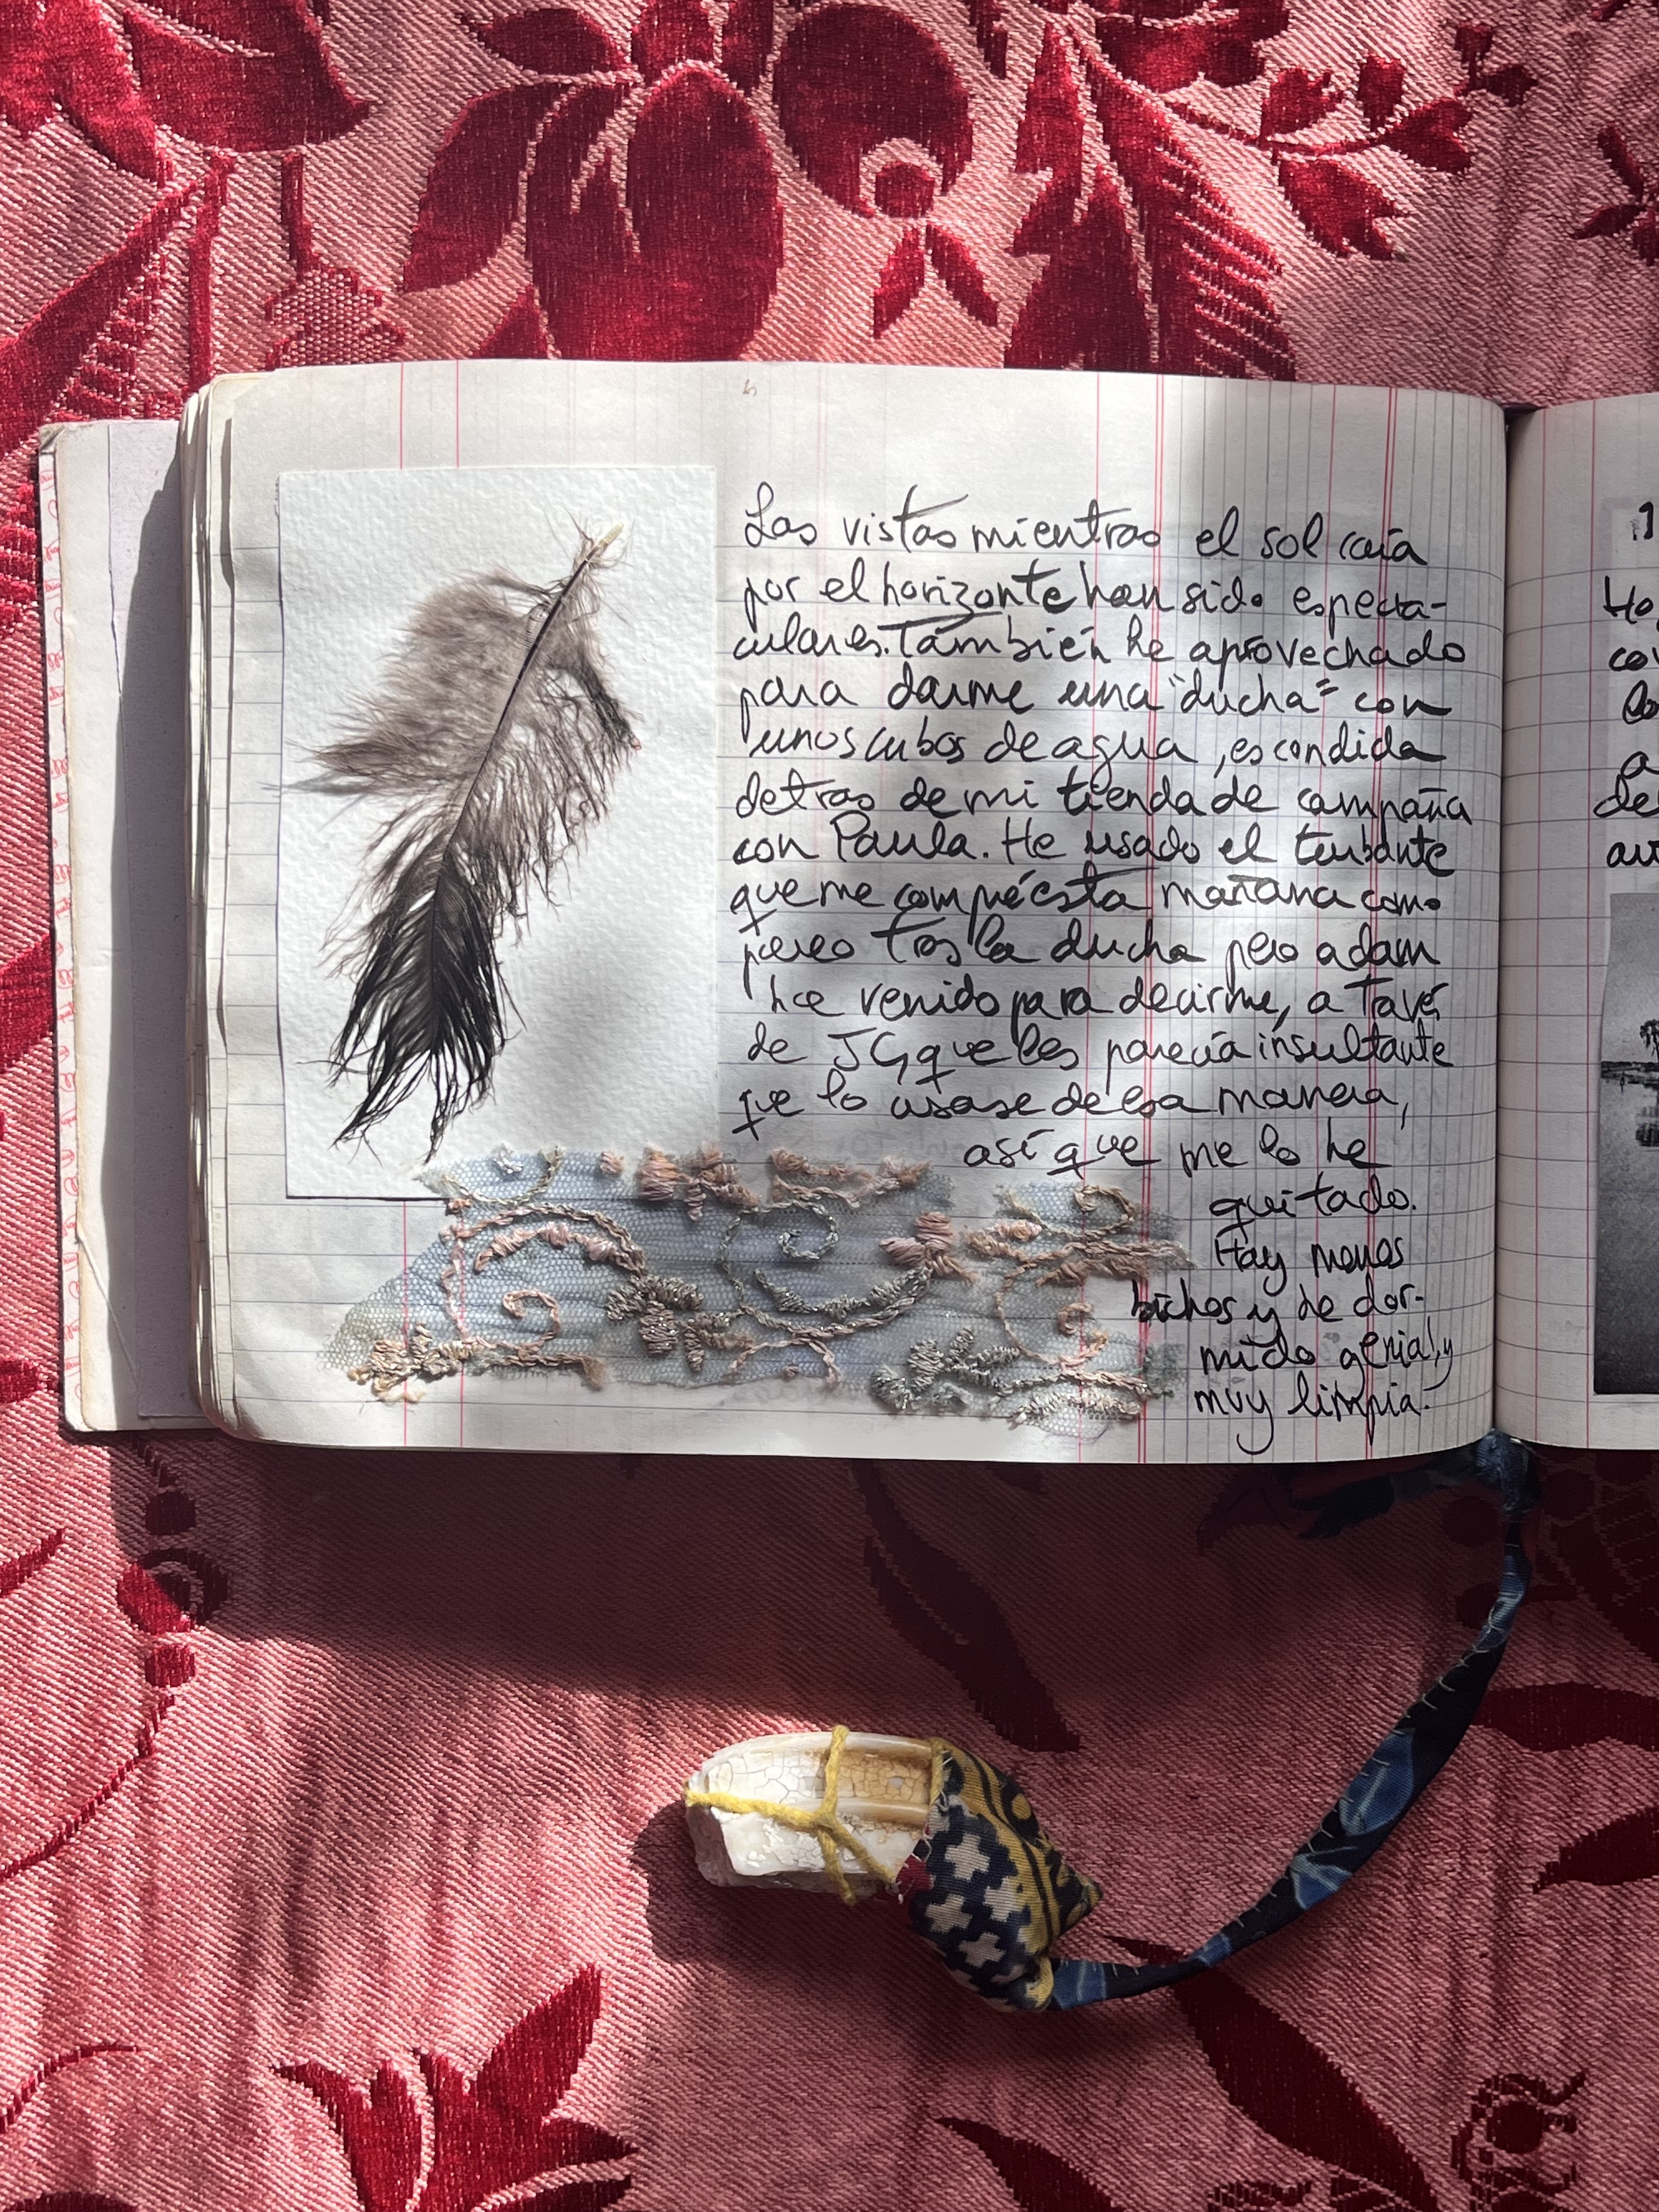 Las vistas mientras el sol caía
por el horizonte han sido especta-
culares. También he aprovechado
para darme una "ducha" con
unos cubos de agua, escondida
detras de mi tienda de campaña
con Paula. He usado el turbante
que me compré esta mañana como
pareo tras la ducha pero adam
ha venido para decirme, a través
de JG, que les parecía insultante
que lo usase de esa manera,
así que me lo he
quitado.
Hay menos
bichos y he dor-
mido genial, y
muy limpia.